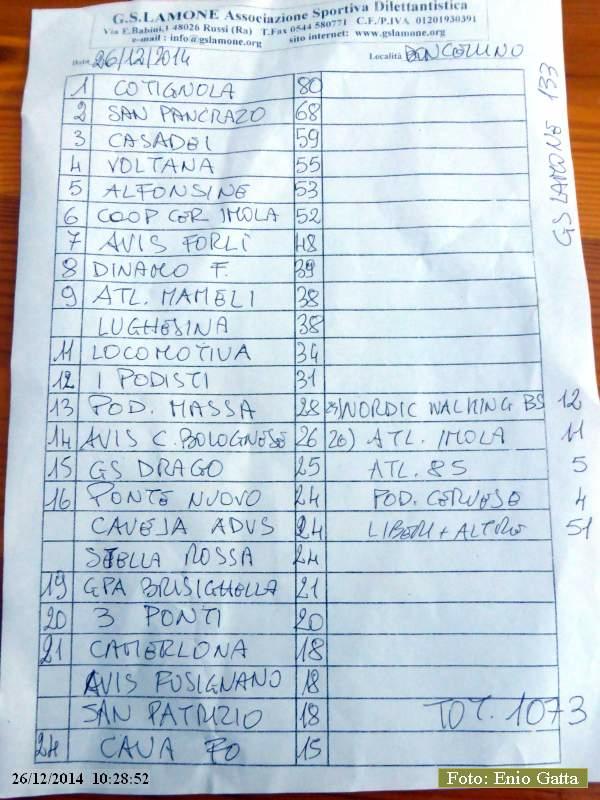 G.S.LAMONE Associazione Sportiva Dilettantistica
Via E.Babini,1 48026 Russi (Ra) T.Fax 0544 580771 C.F./P.IVA 01201930391
e-mail : info@gslamone.org sito internet: www.gslamone.org
Data 26/12/2014 Località
GS LAMONE 133
1 COTIGNOLA 80
2 SAN PANCRAZO 68
3 CASADEI 59
4 VOLTANA 55
5 ALFONSINE 53
6 COOP CER IMOLA 52
7 AVIS FORLÌ 48
8 DINAMO F. 39
9 ATL. MAMELI 38
LUGHESINA 38
11 LOCOMOTIVA 34
12 I PODISTI 31
13 POD. MASSA 28 25) NORDIC WALKING BS 12
14 AVIS C. BOLOGNESE 26 26) ATL. IMOLA 11
15 GS DRAGO 25 ATL. 85 5
16 PONTE NUOVO 24 POD. CERVESE 4
CAVEJA ADVS 24 LIBERI + ALTRE 51
STELLA ROSSA 24
19 GPA BRISIGHELLA 21
20 3 PONTI 20
21 CAMERLONA 18
AVIS FUSIGNANO 18
SAN PATRIZIO 18 TOT. 1073
24 CAVA FO 15
26/12/2014 10:28:52
Foto: Enio Gatta